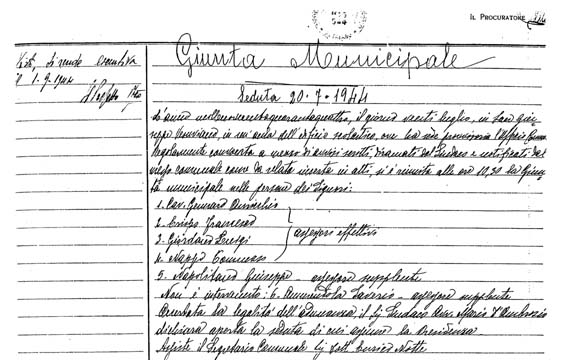 IL PROCURATORE
Visto, si rende esecutiva
il 1.9.1944
Il Prefetto
Giunta Municipale
Seduta 20.7.1944
L'anno millenovecentoquarantaquattro, il giorno venti luglio, in San Giu-
seppe Vesuviano, in un'aula dell'edificio scolastico, ove ha sede provvisoria l'Ufficio
Regolarmente convocata a mezzo di avvisi scritti, diramati dal Sindaco e notificati dal
messo comunale come da relata inserta in atti, si è riunita alle ore 10,30 la Giun-
ta municipale nelle persone dei Signori:
1. Cav. Gennaro Aurelio
2. Francesco
3. Giordano Luigi
assessori effettivi
4. Nappo Tommaso
5. Napolitano Giuseppe - assessore supplente
Non è intervenuto: 6. Ammendola Saverio - assessore supplente
Accertata la legalità dell'adunanza, il Sig. Sindaco Avv. Mario D'Ambrosio
dichiara aperta la seduta di cui assume la Presidenza.
Assiste il Segretario Comunale Sig. Dott.